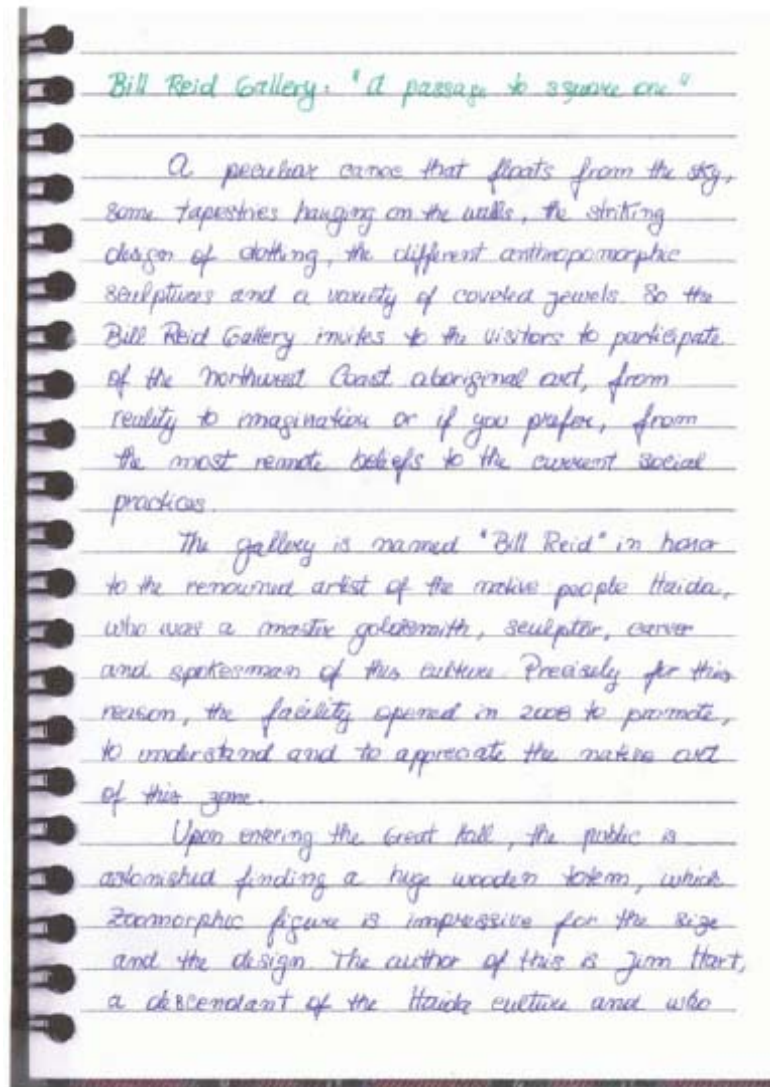 Bill Reid Gallery: "A passage to square one"
A peculiar canoe that floats from the sky,
some tapestries hanging on the walls, the striking
design of clothing, the different anthropomorphic
sculptures and a variety of coveted jewels. So the
Bill Reid Gallery invites to the visitors to participate
of the Northwest Coast aboriginal art, from
reality to imagination or if you prefer, from
the most remote beliefs to the current social
practices.
The gallery is named "Bill Reid" in honor
to the renowned artist of the native people Haida,
who was a master goldsmith, sculptor, carver
and spokesman of this culture. Precisely for this
reason, the facility opened in 2008 to promote,
to understand and to appreciate the native art
of this zone.
Upon entering the Great Hall, the public is
astonished finding a huge wooden totem, which
zoomorphic figure is impressive for the size
and the design. The author of this is Jim Hart,
a descendant of the Haida culture and who